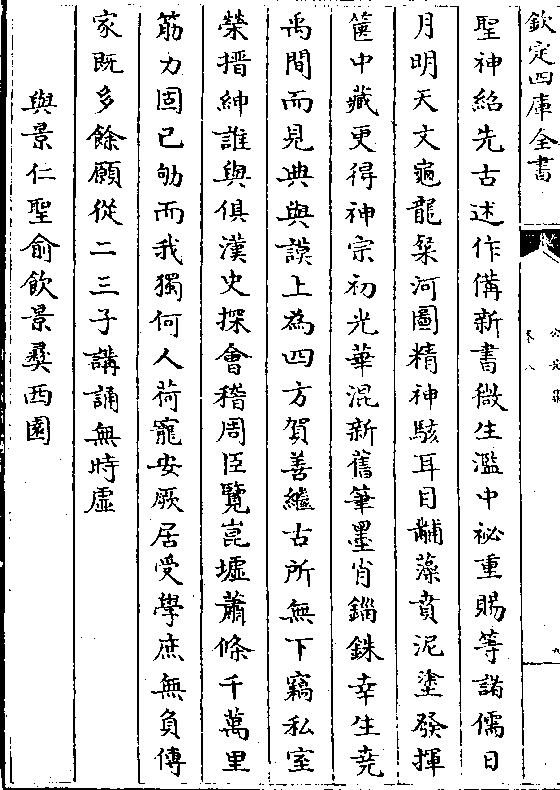 欽定四庫全書
聖神紹先古述作備新書微生濫中祕重賜等諸儒日
月明天文龜龍粲河圖精神駭耳目黼藻賁泥塗發揮
篋中藏更得神宗初光華混新舊筆墨肖錙銖幸生堯
禹間而見典與謨上為四方賀善繼古所無下竊私室
榮搢紳誰與俱漢史探會稽周臣覽崑墟蕭條千萬里
筋力固已劬而我獨何人荷寵安厥居受學庶無負傳
家既多餘願從二三子講誦無時虛
與景仁聖俞飲景彝西園